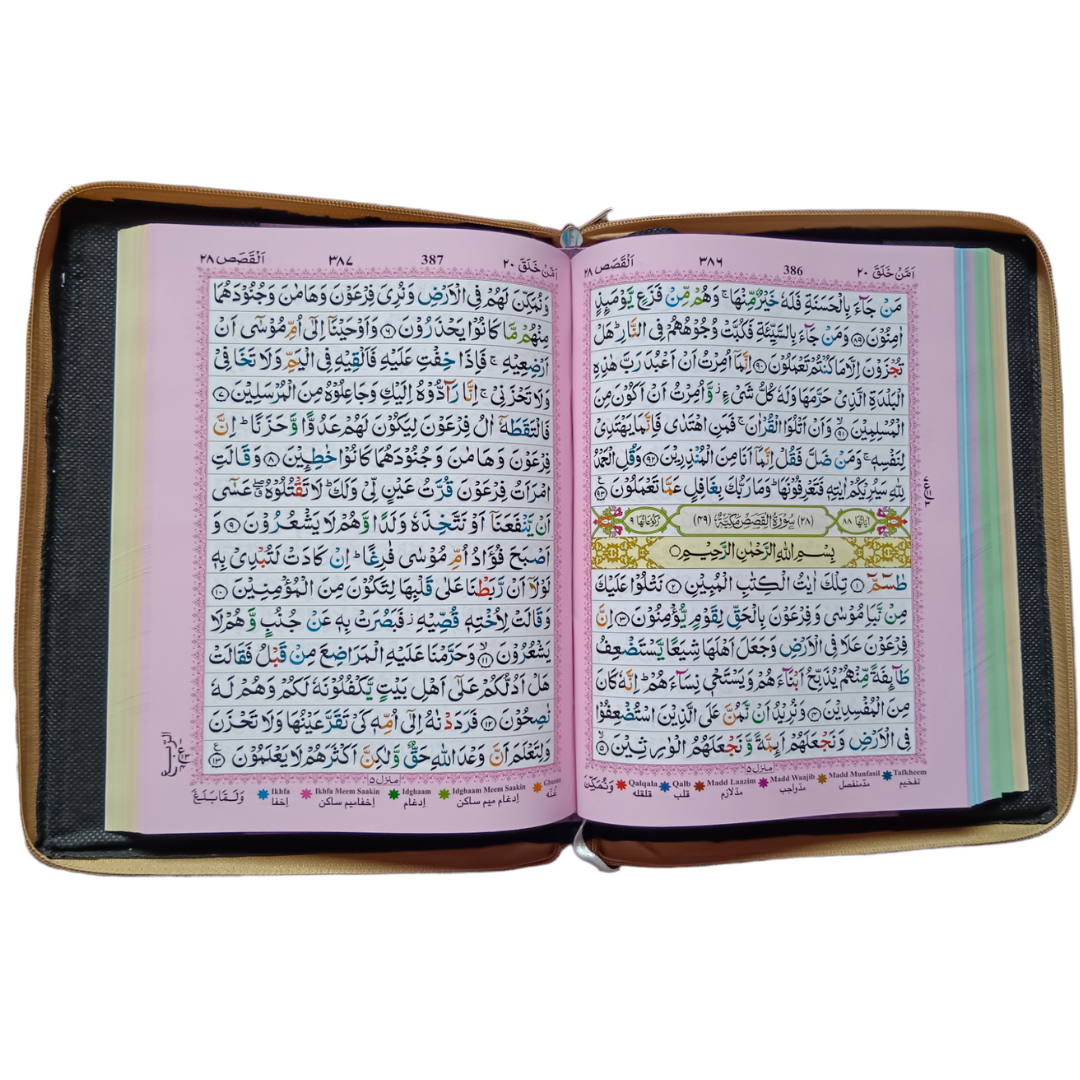 اَمَّنْ خَلَقَ ٢٠ 386 ٣٨٦ اَلْقَصَص ٢٨
مَنْ جَآءَ بِالْحَسَنَةِ فَلَهٗ خَيْرٌ مِّنْهَا ۚ وَهُمْ مِّنْ فَزَعٍ يَّوْمَىِٕذٍ
اٰمِنُوْنَ ۸۹ وَمَنْ جَآءَ بِالسَّيِّئَةِ فَكُبَّتْ وُجُوْهُهُمْ فِى النَّارِ ؕ هَلْ
تُجْزَوْنَ اِلَّا مَا كُنْتُمْ تَعْمَلُوْنَ ۹۰ اِنَّمَاۤ اُمِرْتُ اَنْ اَعْبُدَ رَبَّ هٰذِهِ
الْبَلْدَةِ الَّذِىْ حَرَّمَهَا وَلَهٗ كُلُّ شَىْءٍ ؗ وَّاُمِرْتُ اَنْ اَكُوْنَ مِنَ
الْمُسْلِمِيْنَ ۙ ۹۱ وَاَنْ اَتْلُوَا الْقُرْاٰنَ ۚ فَمَنِ اهْتَدٰى فَاِنَّمَا يَهْتَدِىْ
لِنَفْسِهٖ ۚ وَمَنْ ضَلَّ فَقُلْ اِنَّمَاۤ اَنَا مِنَ الْمُنْذِرِيْنَ ۹۲ وَقُلِ الْحَمْدُ
لِلّٰهِ سَيُرِيْكُمْ اٰيٰتِهٖ فَتَعْرِفُوْنَهَا ؕ وَمَا رَبُّكَ بِغَافِلٍ عَمَّا تَعْمَلُوْنَ ۹۳
اٰيَاتُهَا ٨٨ (٢٨) سُوْرَةُ الْقَصَصِ مَكِّيَّةٌ (٤٩) رُكُوْعَاتُهَا ٩
بِسْمِ اللّٰهِ الرَّحْمٰنِ الرَّحِيْمِ
طٰسٓمّٓ ۱ تِلْكَ اٰيٰتُ الْكِتٰبِ الْمُبِيْنِ ۲ نَتْلُوْا عَلَيْكَ
مِنْ نَّبَاِ مُوْسٰى وَفِرْعَوْنَ بِالْحَقِّ لِقَوْمٍ يُّؤْمِنُوْنَ ۳ اِنَّ
فِرْعَوْنَ عَلَا فِى الْاَرْضِ وَجَعَلَ اَهْلَهَا شِيَعًا يَّسْتَضْعِفُ
طَآىِٕفَةً مِّنْهُمْ يُذَبِّحُ اَبْنَآءَهُمْ وَيَسْتَحْىٖ نِسَآءَهُمْ ؕ اِنَّهٗ كَانَ
مِنَ الْمُفْسِدِيْنَ ۴ وَنُرِيْدُ اَنْ نَّمُنَّ عَلَى الَّذِيْنَ اسْتُضْعِفُوْا
فِى الْاَرْضِ وَنَجْعَلَهُمْ اَىِٕمَّةً وَّنَجْعَلَهُمُ الْوٰرِثِيْنَ ۵
منزل ٥
وَنُمَكِّنَ Qalqala Qalb Madd Laazim Madd Waajib Madd Munfasil Tafkheem
قلقله قلب مدّلازم مدّواجب مدّمنفصل تفخیم
اَمَّنْ خَلَقَ ٢٠ 387 ٣٨٧ اَلْقَصَص ٢٨
وَنُمَكِّنَ لَهُمْ فِى الْاَرْضِ وَنُرِىَ فِرْعَوْنَ وَهَامٰنَ وَجُنُوْدَهُمَا
مِنْهُمْ مَّا كَانُوْا يَحْذَرُوْنَ ۶ وَاَوْحَيْنَاۤ اِلٰٓى اُمِّ مُوْسٰٓى اَنْ
اَرْضِعِيْهِ ۚ فَاِذَا خِفْتِ عَلَيْهِ فَاَلْقِيْهِ فِى الْيَمِّ وَلَا تَخَافِىْ
وَلَا تَحْزَنِىْ ۚ اِنَّا رَآدُّوْهُ اِلَيْكِ وَجَاعِلُوْهُ مِنَ الْمُرْسَلِيْنَ ۷
فَالْتَقَطَهٗۤ اٰلُ فِرْعَوْنَ لِيَكُوْنَ لَهُمْ عَدُوًّا وَّحَزَنًا ؕ اِنَّ
فِرْعَوْنَ وَهَامٰنَ وَجُنُوْدَهُمَا كَانُوْا خٰطِـِٕيْنَ ۸ وَقَالَتِ
امْرَاَتُ فِرْعَوْنَ قُرَّتُ عَيْنٍ لِّىْ وَلَكَ ؕ لَا تَقْتُلُوْهُ ۖۗ عَسٰٓى
اَنْ يَّنْفَعَنَاۤ اَوْ نَتَّخِذَهٗ وَلَدًا وَّهُمْ لَا يَشْعُرُوْنَ ۹ وَ
اَصْبَحَ فُؤَادُ اُمِّ مُوْسٰى فٰرِغًا ؕ اِنْ كَادَتْ لَتُبْدِىْ بِهٖ
لَوْلَاۤ اَنْ رَّبَطْنَا عَلٰى قَلْبِهَا لِتَكُوْنَ مِنَ الْمُؤْمِنِيْنَ ۱۰
وَقَالَتْ لِاُخْتِهٖ قُصِّيْهِ ؗ فَبَصُرَتْ بِهٖ عَنْ جُنُبٍ وَّهُمْ لَا
يَشْعُرُوْنَ ۱۱ وَحَرَّمْنَا عَلَيْهِ الْمَرَاضِعَ مِنْ قَبْلُ فَقَالَتْ
هَلْ اَدُلُّكُمْ عَلٰٓى اَهْلِ بَيْتٍ يَّكْفُلُوْنَهٗ لَكُمْ وَهُمْ لَهٗ
نٰصِحُوْنَ ۱۲ فَرَدَدْنٰهُ اِلٰٓى اُمِّهٖ كَىْ تَقَرَّ عَيْنُهَا وَلَا تَحْزَنَ
وَلِتَعْلَمَ اَنَّ وَعْدَ اللّٰهِ حَقٌّ وَّلٰكِنَّ اَكْثَرَهُمْ لَا يَعْلَمُوْنَ ۱۳
الرّبع
منزل ٥
وَلَمَّا بَلَغَ Ikhfa Ikhfa Meem Saakin Idghaam Idghaam Meem Saakin Ghunna
اِخفا اِخفامیم ساکن اِدغام اِدغام میم ساکن غُنّه